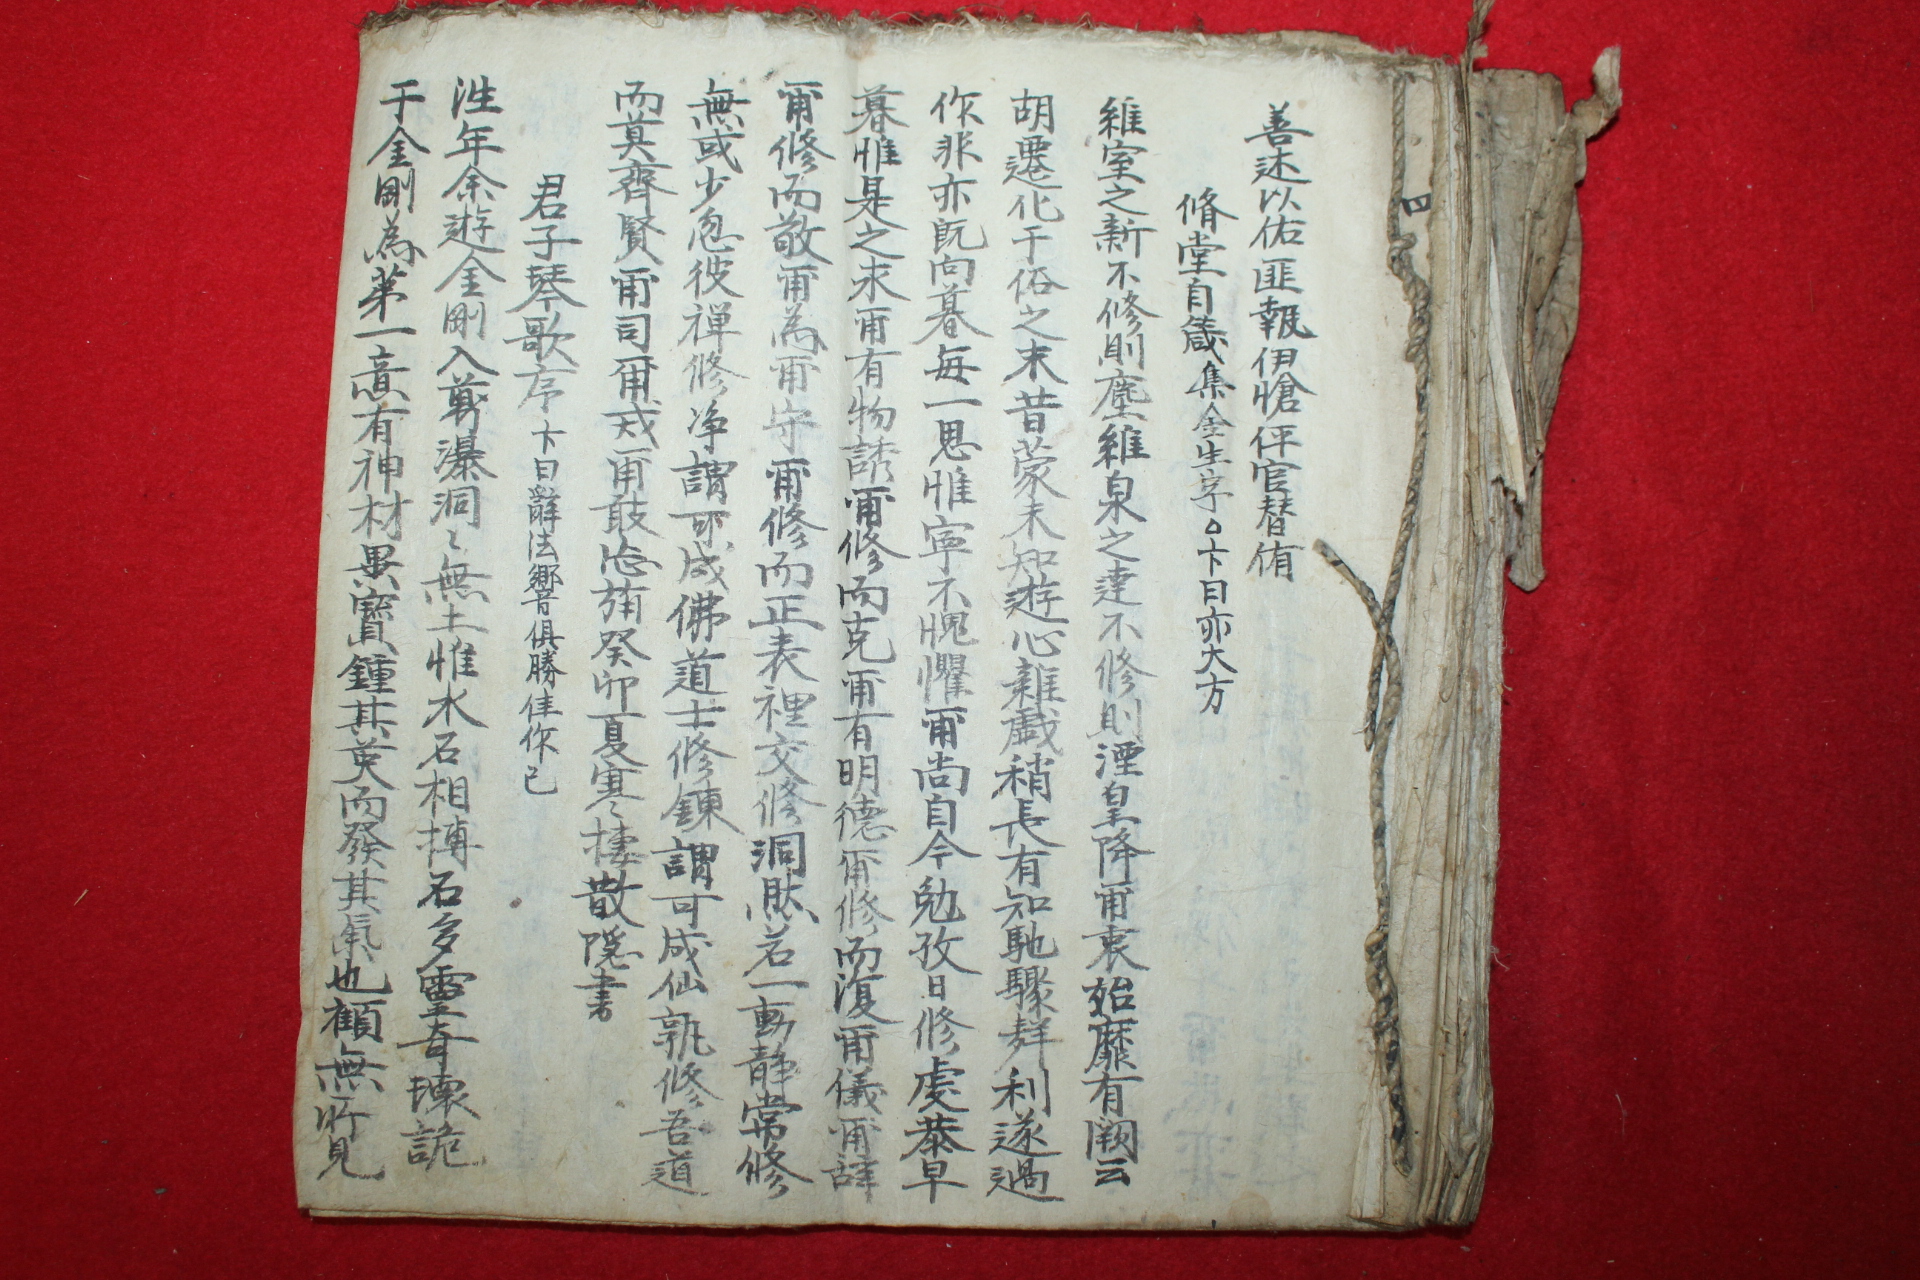 善述以佑匪報伊愴伻官替侑
脩堂自箴集金生字○卞曰亦大方
維室之新不修則塵維泉之達不修則湮皇降甬衷始靡有闕云
胡遷化于俗之末昔蒙未知遊心雜戲稍長有知馳驟群利遂過
作非亦旣向暮每一思惟寧不愧懼甬尚自今勉孜日修虔恭早
暮惟是之求甬有物誘甬修而克甬有明德甬修而復甬儀甬辞
甬修而敬甬為甬守甬修而正表裡交修洞然若一動靜常修
無或少忽彼禅修净謂成佛道士修鍊謂可成仙孰修吾道
而莫齊賢甬司爾戒甬敢忘旃癸卯夏寒〻棲散隱書
君子琴歌序卞曰辭法響俱勝佳作已
往年余遊金剛入萬瀑洞〻無土惟水石相摶石多靈奇瓌詭
于金剛為第一意有神材異寶鍾其英而發其氣也顧無所見
四